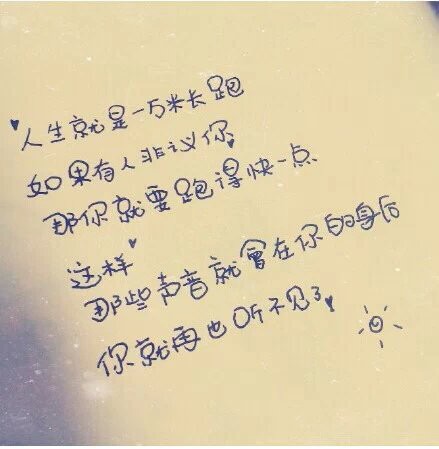 人生就是一万米长跑
如果有人非议你
那你就要跑得快一点
这样
那些声音就會在你的身后
你就再也听不见了